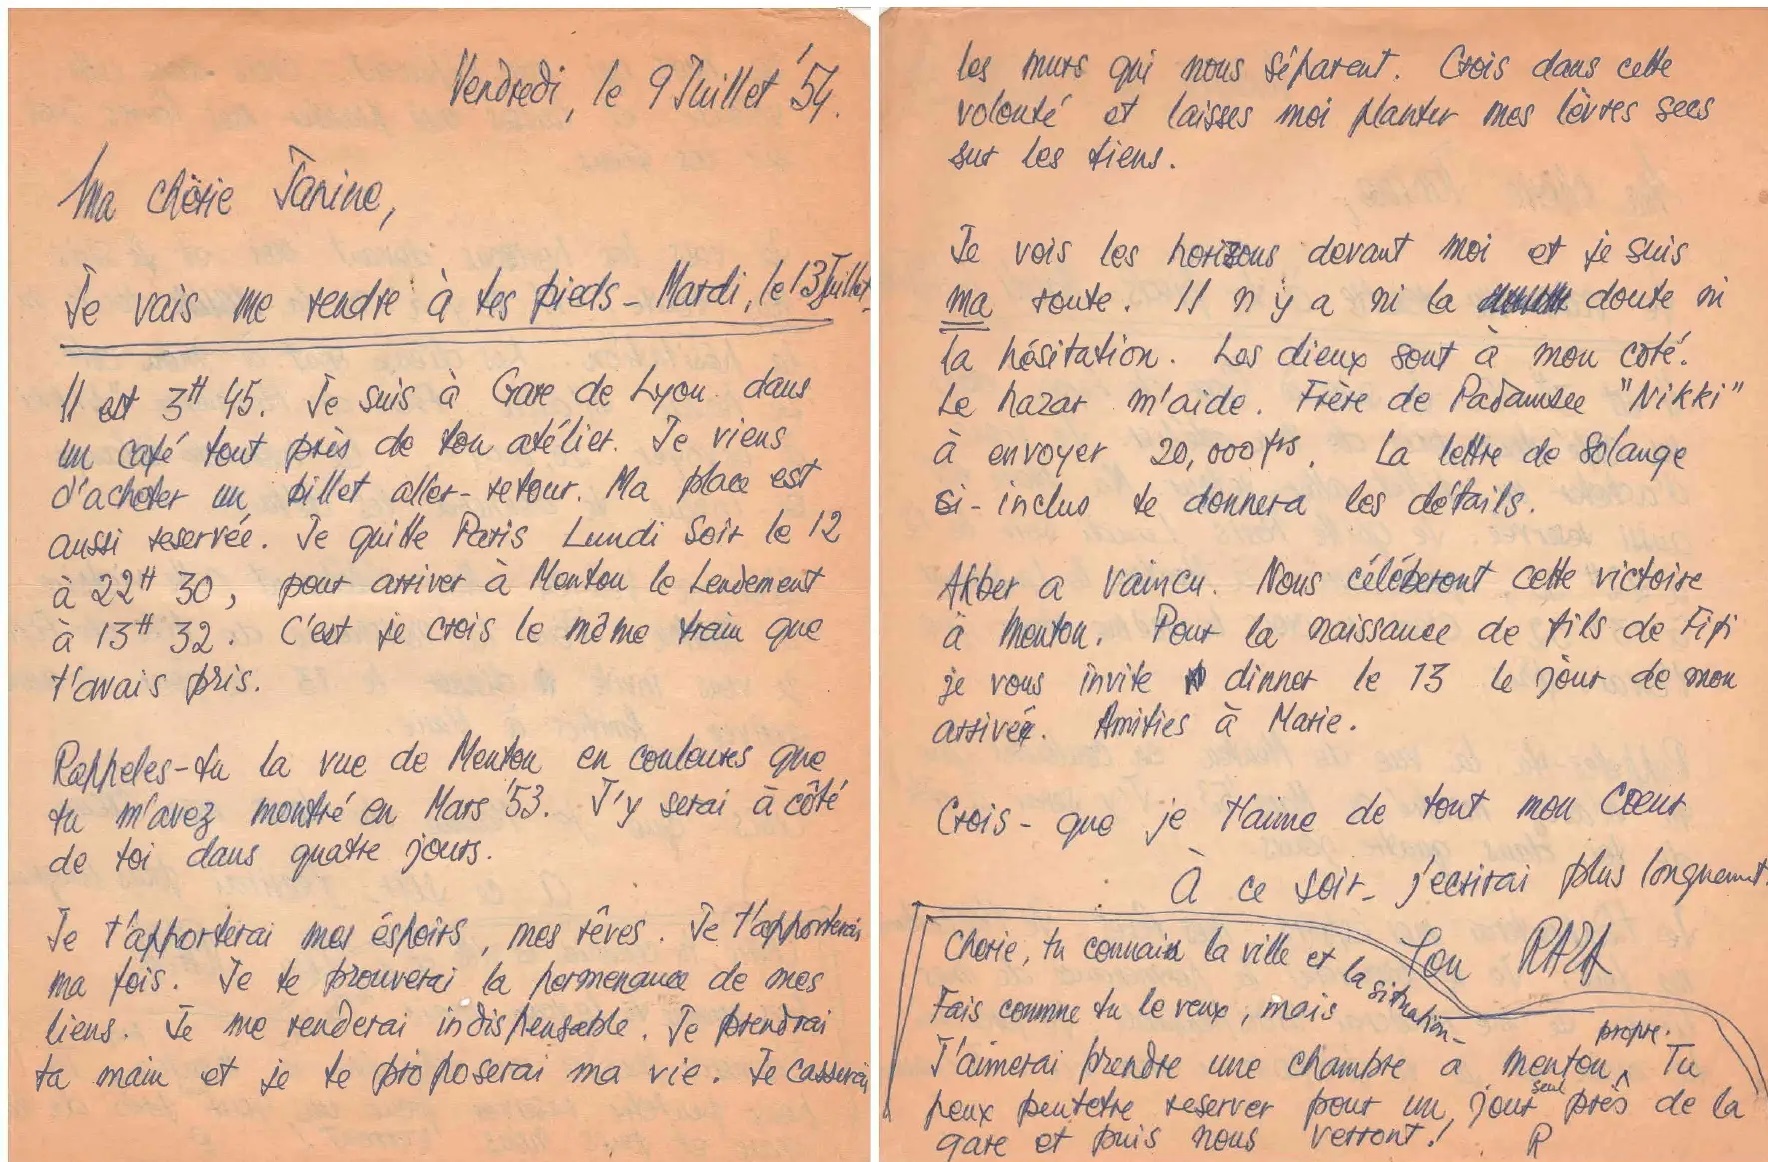 Vendredi, le 9 Juillet '54.
Ma chérie Janine,
Je vais me rendre à tes pieds - Mardi, le 13 Juillet.
Il est 3H 45. Je suis à Gare de Lyon dans
un café tout près de ton atélier. Je viens
d'acheter un billet aller-retour. Ma place est
aussi reservée. Je quitte Paris Lundi Soir le 12
à 22H 30, pour arriver à Menton le Lendement
à 13H 32. C'est je crois le même train que
t'avais pris.
Rappeles-tu la vue de Menton en couleures que
tu m'avez montré en Mars '53. J'y serai à côté
de toi dans quatre jours.
Je t'apporterai mes éspoirs, mes rêves. Je t'apporterai
ma fois. Je te prouverai la permenance de mes
liens. Je me renderai indispensable. Je prendrai
ta main et je te proposerai ma vie. Je casserai
les murs qui nous séparent. Crois dans cette
volonté et laisses moi planter mes lèvres secs
sur les tiens.
Je vois les horizons devant moi et je suis
ma route. Il n'y a ni la doute ni
la hésitation. Les dieux sont à mon coté.
Le hazar m'aide. Frère de Padamsee "Nikki"
à envoyer 20,000 frs. La lettre de Solange
si-inclus te donnera les détails.
Akber a vaincu. Nous céléberont cette victoire
à Menton. Pour la naissance de fils de Fifi
je vous invite dinner le 13 le jour de mon
arrivée. Amities à Marie.
Crois - que je t'aime de tout mon Cœur
À ce soir - j'ecrirai plus longuement.
Ton RAZA
Cherie, tu connais la ville et la situation -
Fais comme tu le veux, mais
J'aimerai prendre une chambre à menton propre. Tu
peux peutetre reserver pour un seul jour près de la
gare et puis nous verront! R